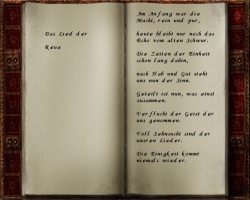 Das Lied der
Reue
Am Anfang war die
Macht, rein und pur,
heute bleibt nur noch das
Echo vom alten Schwur.
Die Zeiten der Einheit
schon lang dahin,
nach Hab und Gut steht
uns nun der Sinn.
Geteilt ist nun, was einst
zusammen.
Verflucht der Geist der
uns gewonnen.
Voll Sehnsucht sind der
unsren Lieder.
Die Einigkeit kommt
niemals wieder.